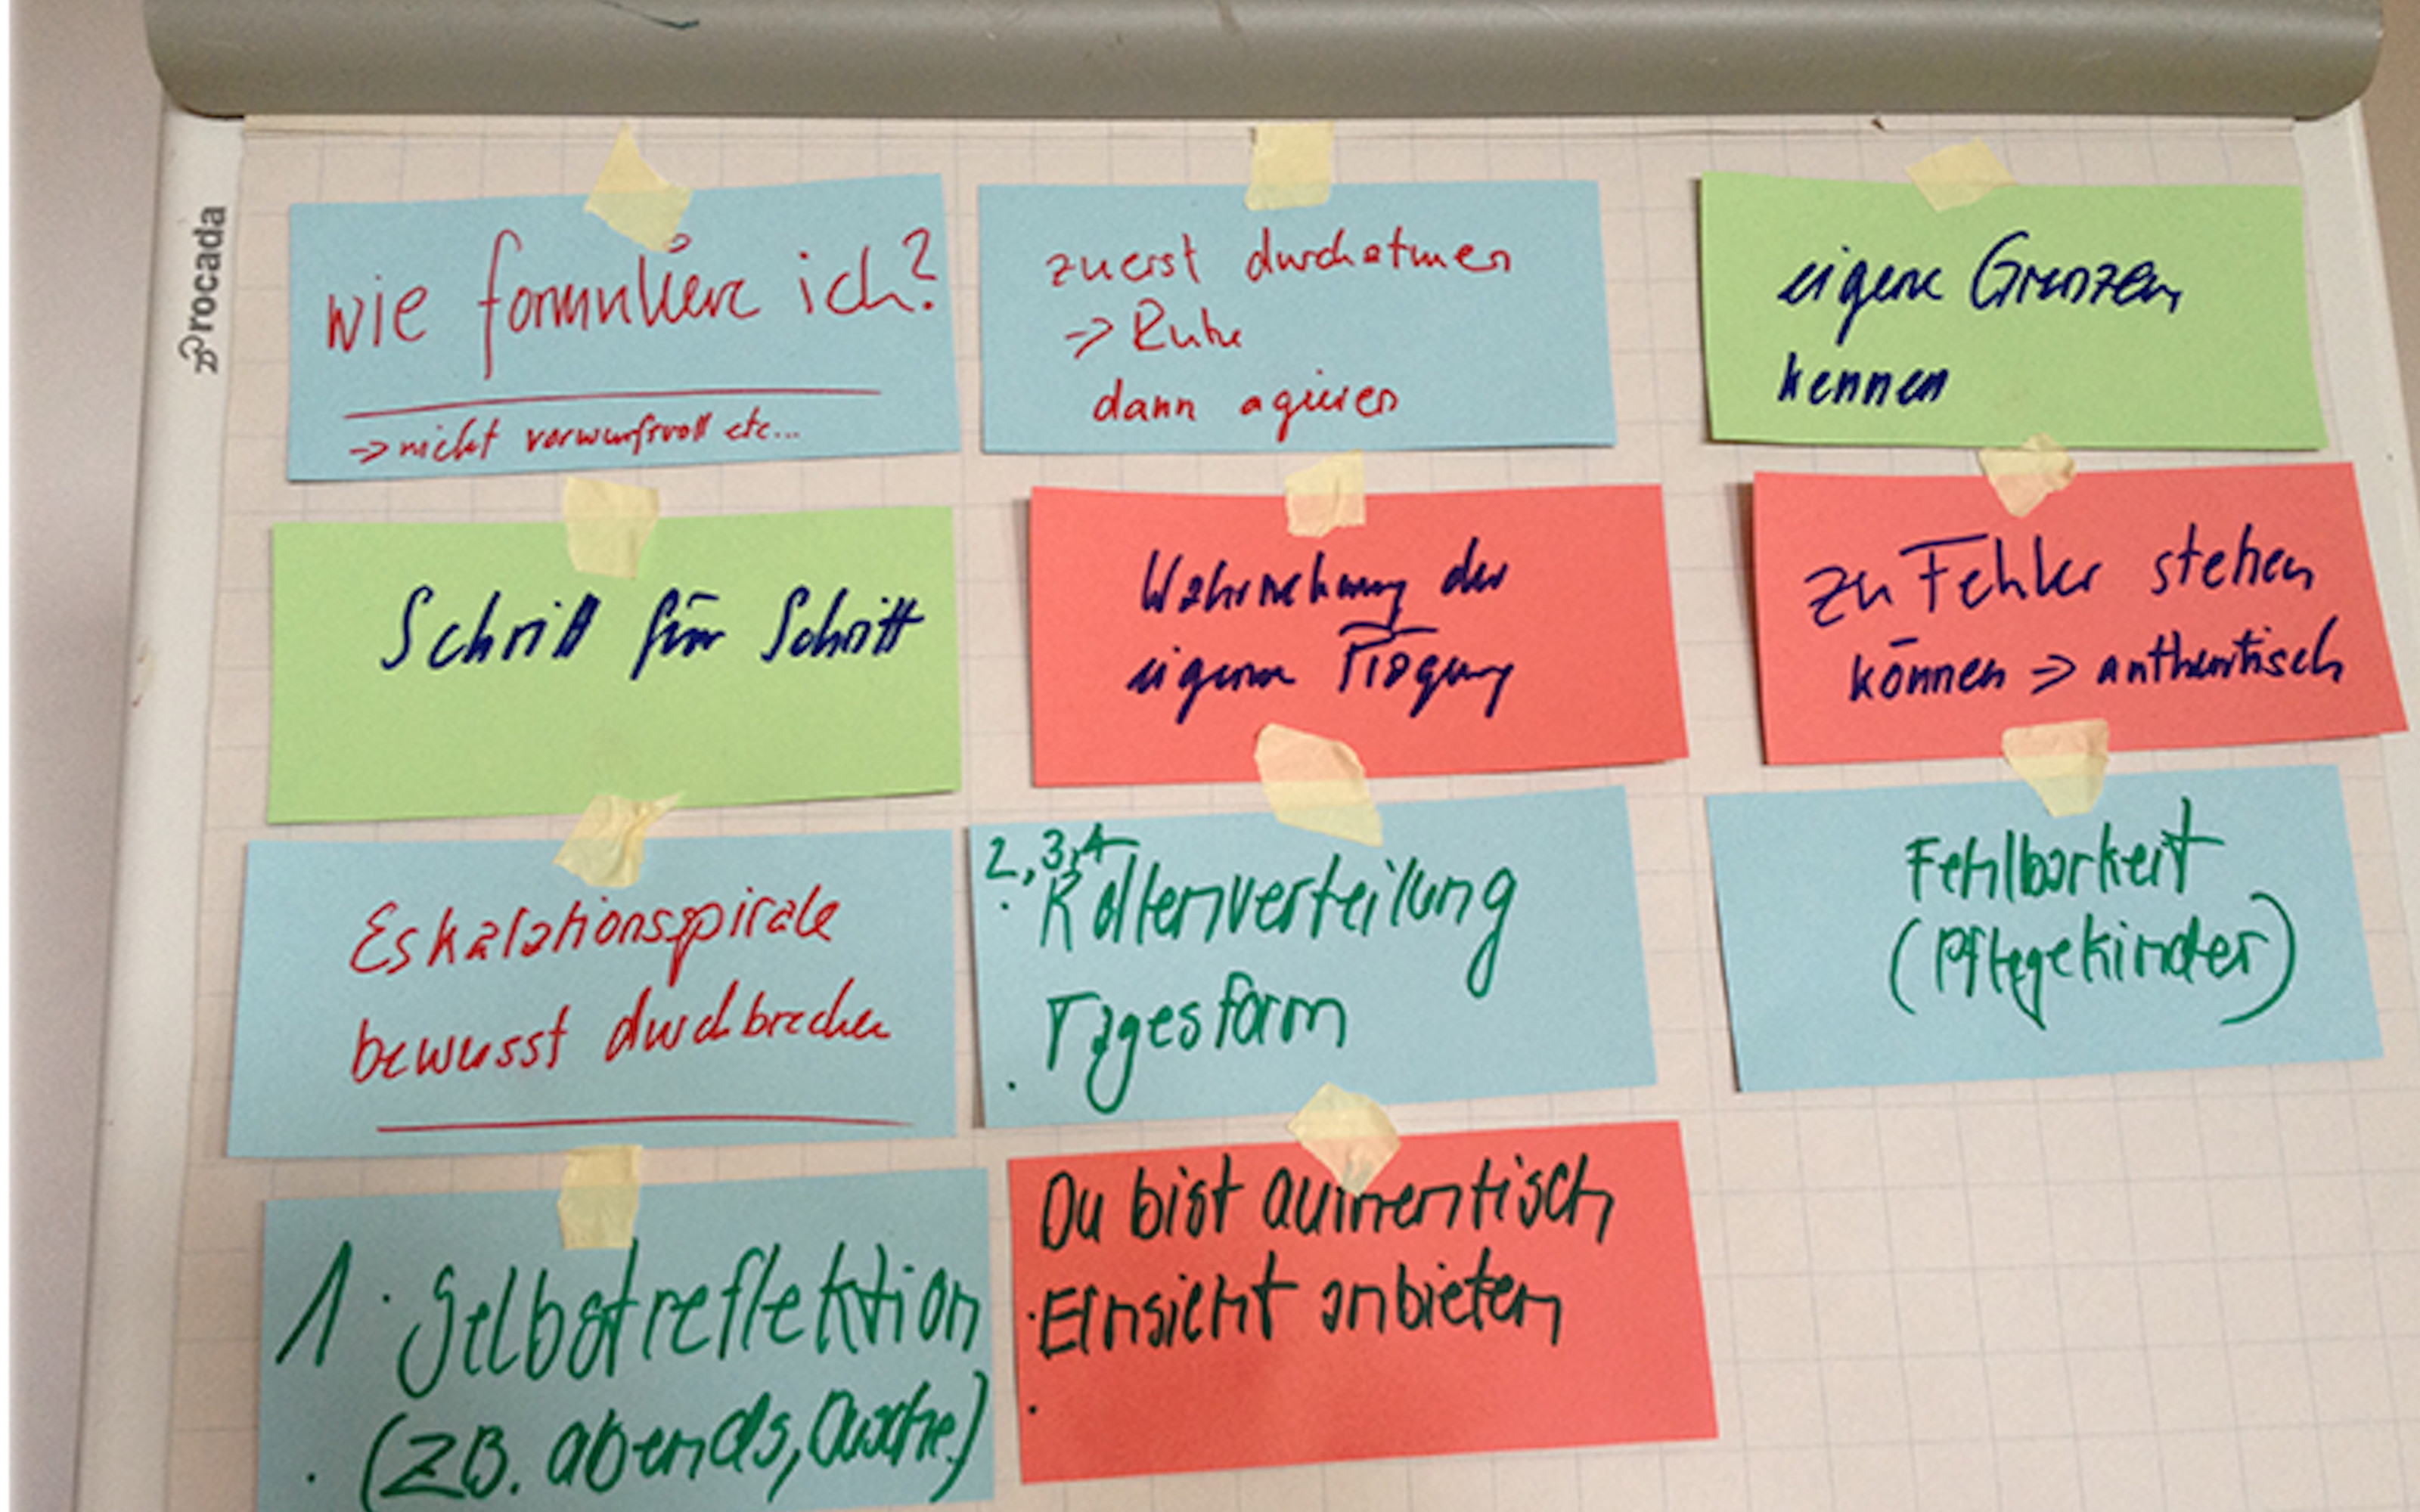 rocada
wie formuliere ich?
→ nicht vorwurfsvoll etc...
zuerst durchatmen
→ Ruhe
dann agieren
eigene Grenzen
kennen
Schritt für Schritt
Wahrnehmung der
eigenen Prägung
zu Fehler stehen
können => authentisch
Eskalationsspirale
bewusst durchbrechen
2, 3, 4
· Rollenverteilung
· Tagesform
Fehlbarkeit
(Pflegekinder)
1 · Selbstreflektion
· (z.B. abends, Dusche)
Du bist authentisch
· Einsicht anbieten
·